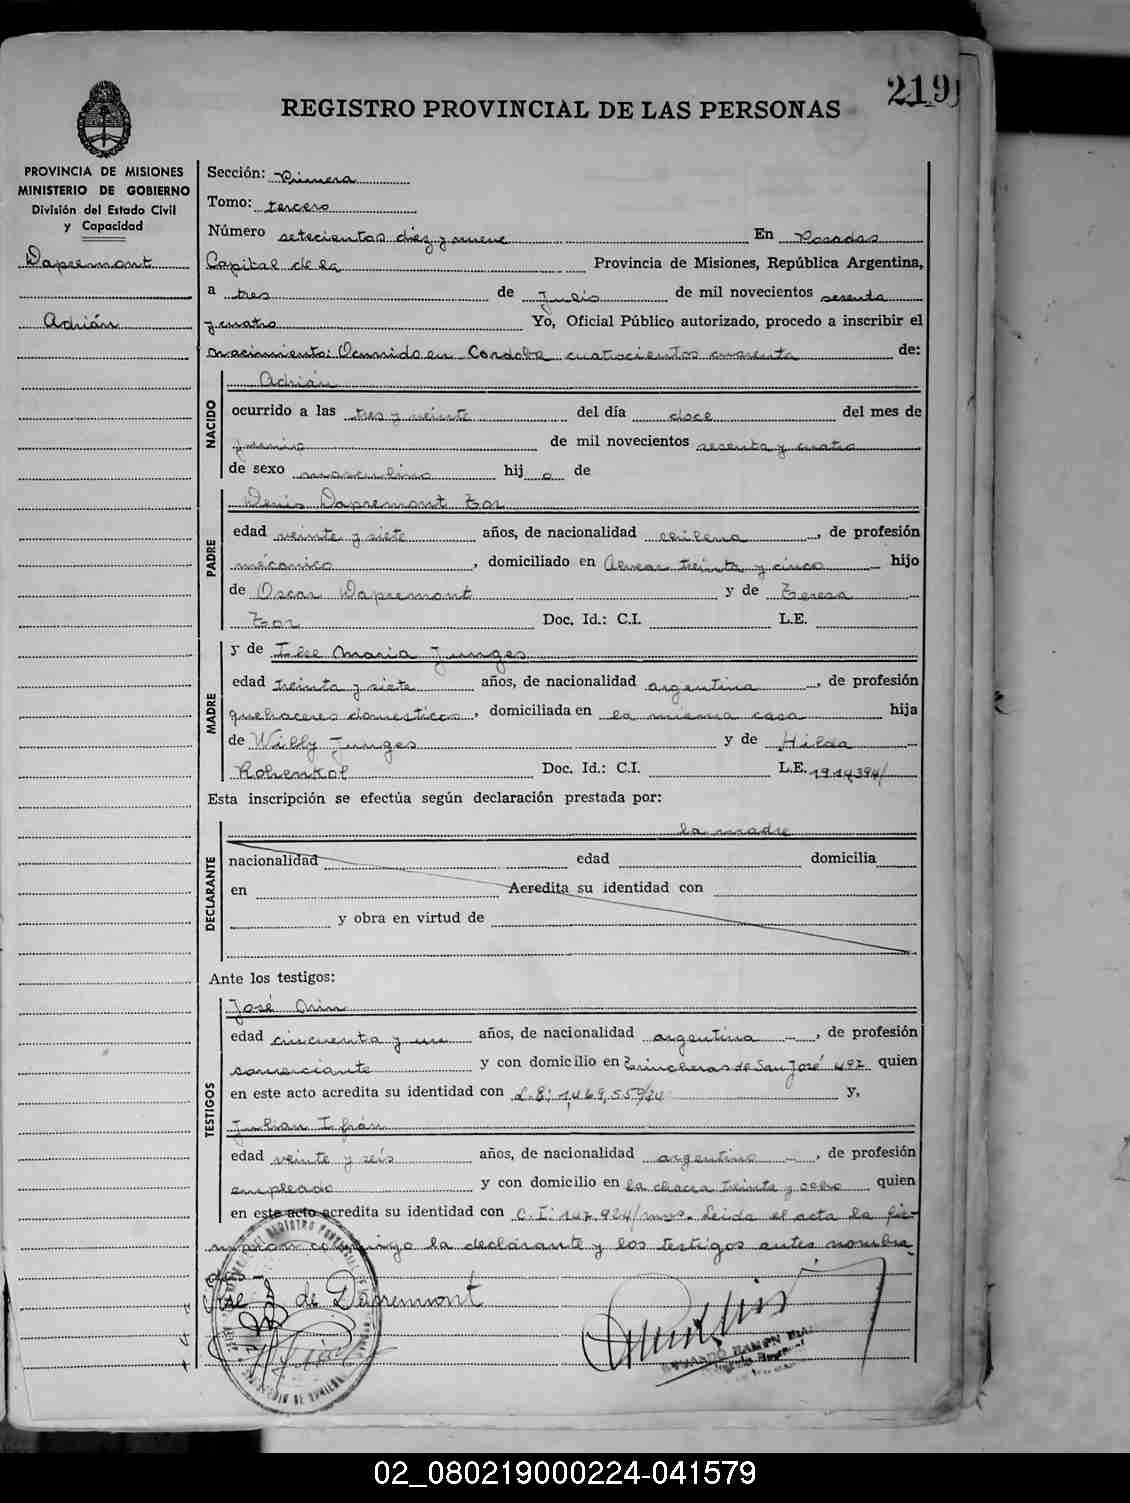 219
REGISTRO PROVINCIAL DE LAS PERSONAS
PROVINCIA DE MISIONES
MINISTERIO DE GOBIERNO
División del Estado Civil
y Capacidad
Dapremont
Adrián
Sección: Primera
Tomo: tercero
Número setecientos diez y nueve En Posadas
Capital de la Provincia de Misiones, República Argentina,
a tres de Julio de mil novecientos sesenta
y cuatro Yo, Oficial Público autorizado, procedo a inscribir el
nacimiento: Ocurrido en Cordoba cuatrocientos cuarenta de:
NACIDO
Adrián
ocurrido a las tres y veinte del día doce del mes de
junio de mil novecientos sesenta y cuatro
de sexo masculino hij o de
PADRE
Denis Dapremont Zor
edad veinte y siete años, de nacionalidad chilena, de profesión
mécanico, domiciliado en Alvear treinta y cinco hijo
de Oscar Dapremont y de Teresa
Zor Doc. Id.: C.I. L.E.
MADRE
y de Ilse Maria Junges
edad treinta y siete años, de nacionalidad argentina, de profesión
quehaceres domesticos, domiciliada en la misma casa hija
de Willy Junges y de Hilda
Doc. Id.: C.I. L.E. 1914394/
Esta inscripción se efectúa según declaración prestada por:
la madre
DECLARANTE
nacionalidad edad domicilia
en Acredita su identidad con
y obra en virtud de
Ante los testigos:
TESTIGOS
José
edad cincuenta y un años, de nacionalidad argentina, de profesión
comerciante y con domicilio en Trincheras de San José 492 quien
en este acto acredita su identidad con L.E: y,
Julian Ifrán
edad veinte y seis años, de nacionalidad argentino, de profesión
empleado y con domicilio en la chacra treinta y ocho quien
en este acto acredita su identidad con C.I: 147.924/mns. Leida el acta la fir-
maron conmigo la declarante y los testigos antes nombra
dos
Ilse J de Dapremont
02_080219000224-041579